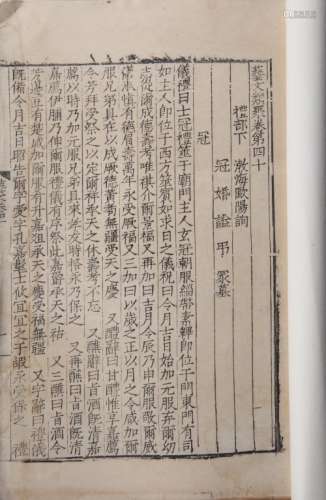 藝文類聚卷第四十
禮部下 渤海歐陽詢
冠 婚 謚 弔 冢墓
冠
儀禮曰士冠禮筮于廟門主人玄冠朝服緇帶素韠即位于門東門有司
如主人即位于西方筮賓如求日之儀祝曰令月吉日始加元服弃尔幼
志從尔成德壽考唯祺介尔景福又再加曰吉月令辰乃申爾服敬爾威
儀淑慎尔德眉壽萬年永受胡福又三加曰以歲之正以月之令咸加爾
服兄弟具在以成厥德黃耇無疆受天之慶 又醴辭曰甘醴惟孳嘉薦
令芳拜受祭之以定尔祥承天之休壽考不忘 又醮辭曰旨酒既清嘉
薦以時乃加元服兄弟具來孝友時格永乃保之 又再醮曰旨酒既湑
嘉薦伊脯乃伸爾服禮儀有序祭此嘉爵承天之祜 又三醮曰旨酒令
芳籩豆有楚咸加爾服有升嘉俎承天之慶受福無疆 又字辭曰禮儀
既備令月吉日昭告爾字爰字孔嘉髦士攸宜宜之于嘏永受保之 禮